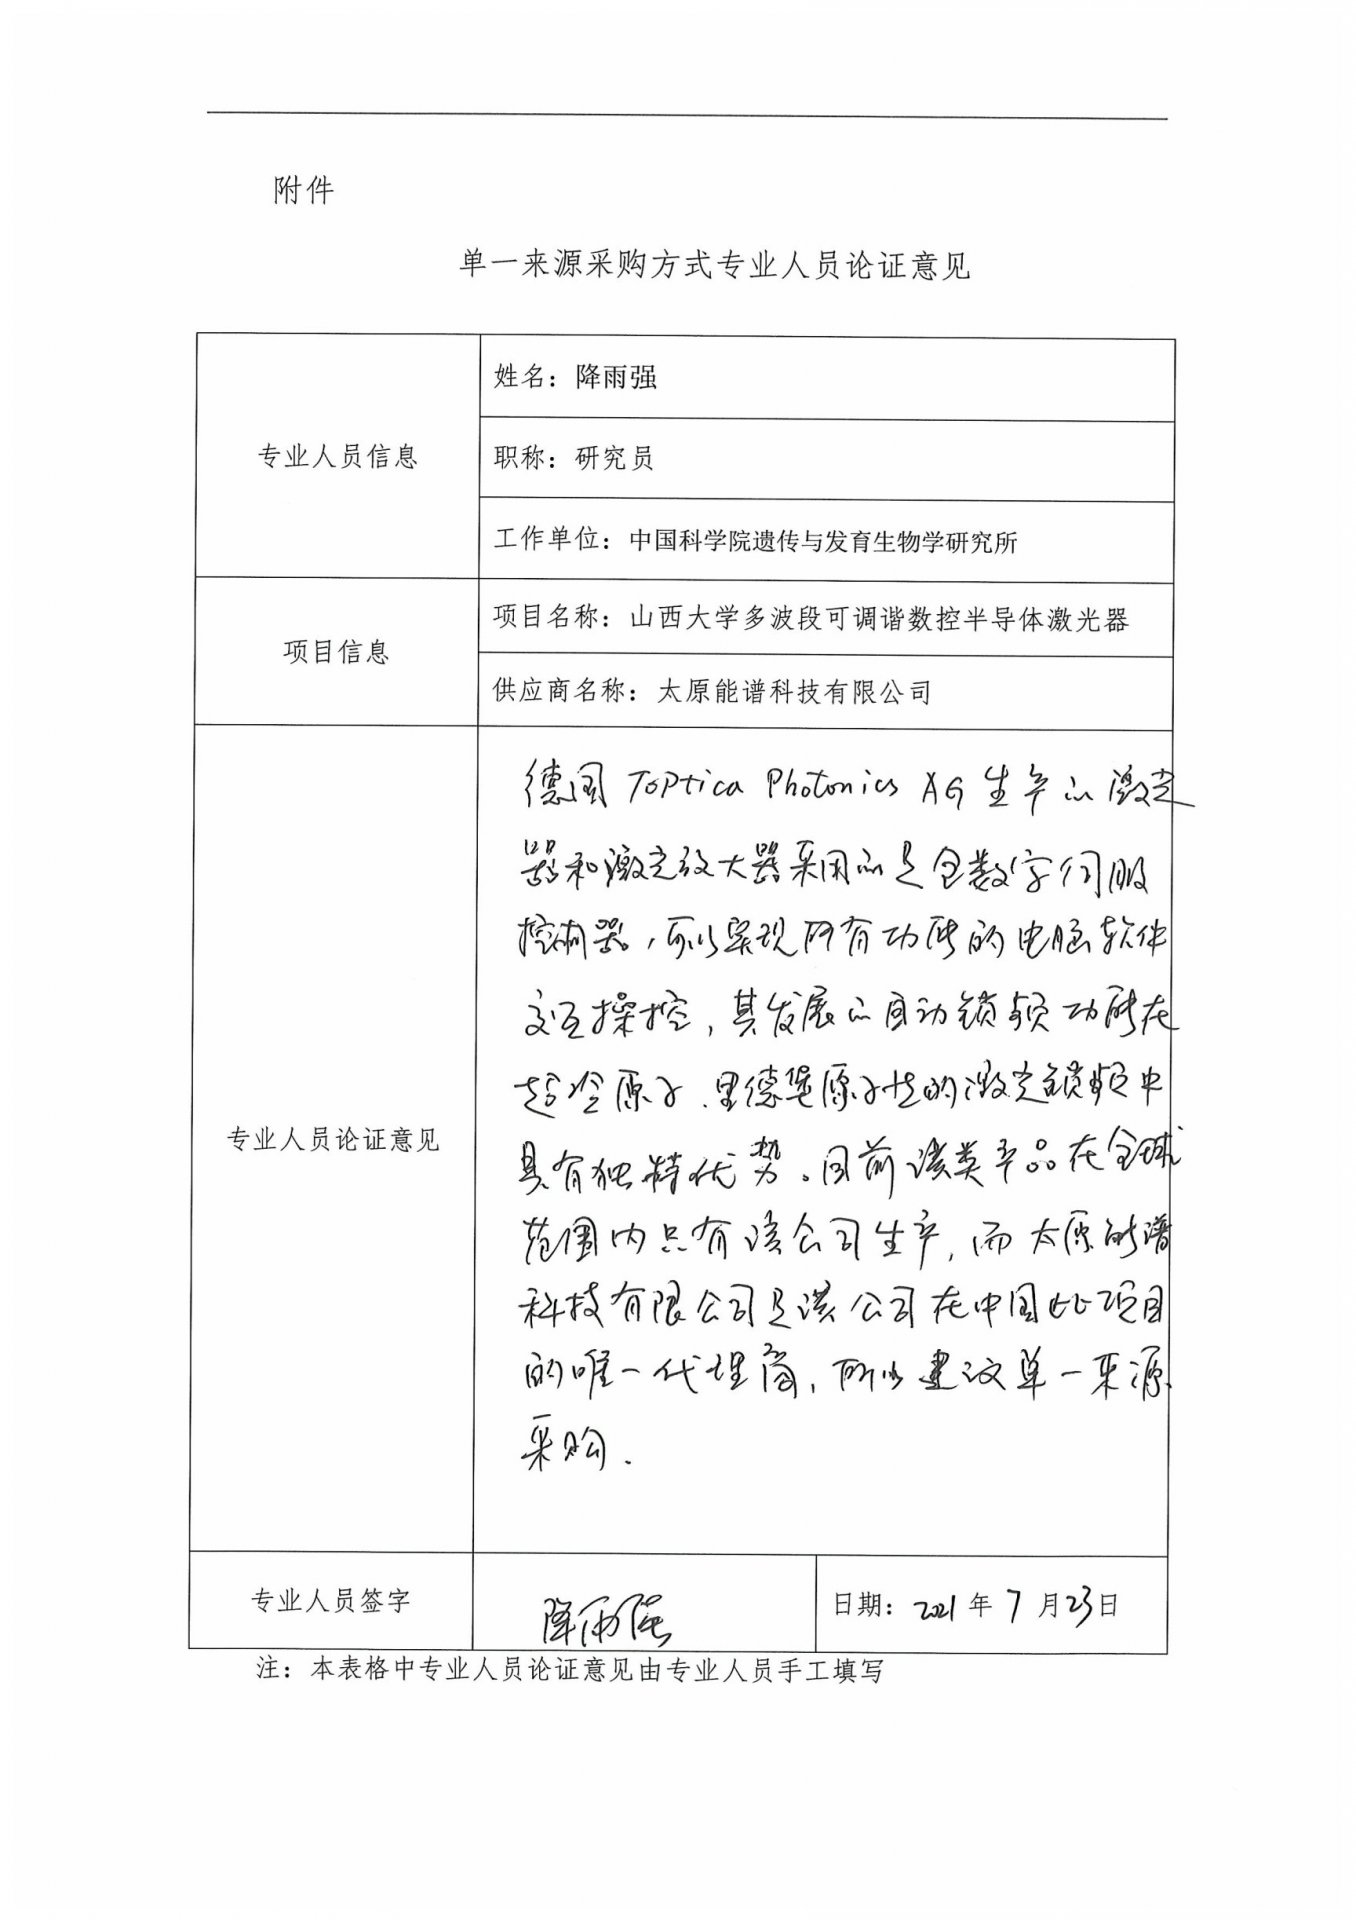 附件
单一来源采购方式专业人员论证意见
专业人员信息
姓名：降雨强
职称：研究员
工作单位：中国科学院遗传与发育生物学研究所
项目信息
项目名称：山西大学多波段可调谐数控半导体激光器
供应商名称：太原能谱科技有限公司
专业人员论证意见
德国 Toptica Photonics AG 生产的激光
器和激光放大器采用的是全数字伺服
控制器，可以实现所有功能的电脑软件
交互操控，其发展的自动锁频功能在
超冷原子、里德堡原子性的激光锁频中
具有独特优势。目前该类产品在全球
范围内只有该公司生产，而太原能谱
科技有限公司是该公司在中国此项目
的唯一代理商，所以建议单一来源
采购.
专业人员签字
降雨强
日期：2021年7月23日
注：本表格中专业人员论证意见由专业人员手工填写